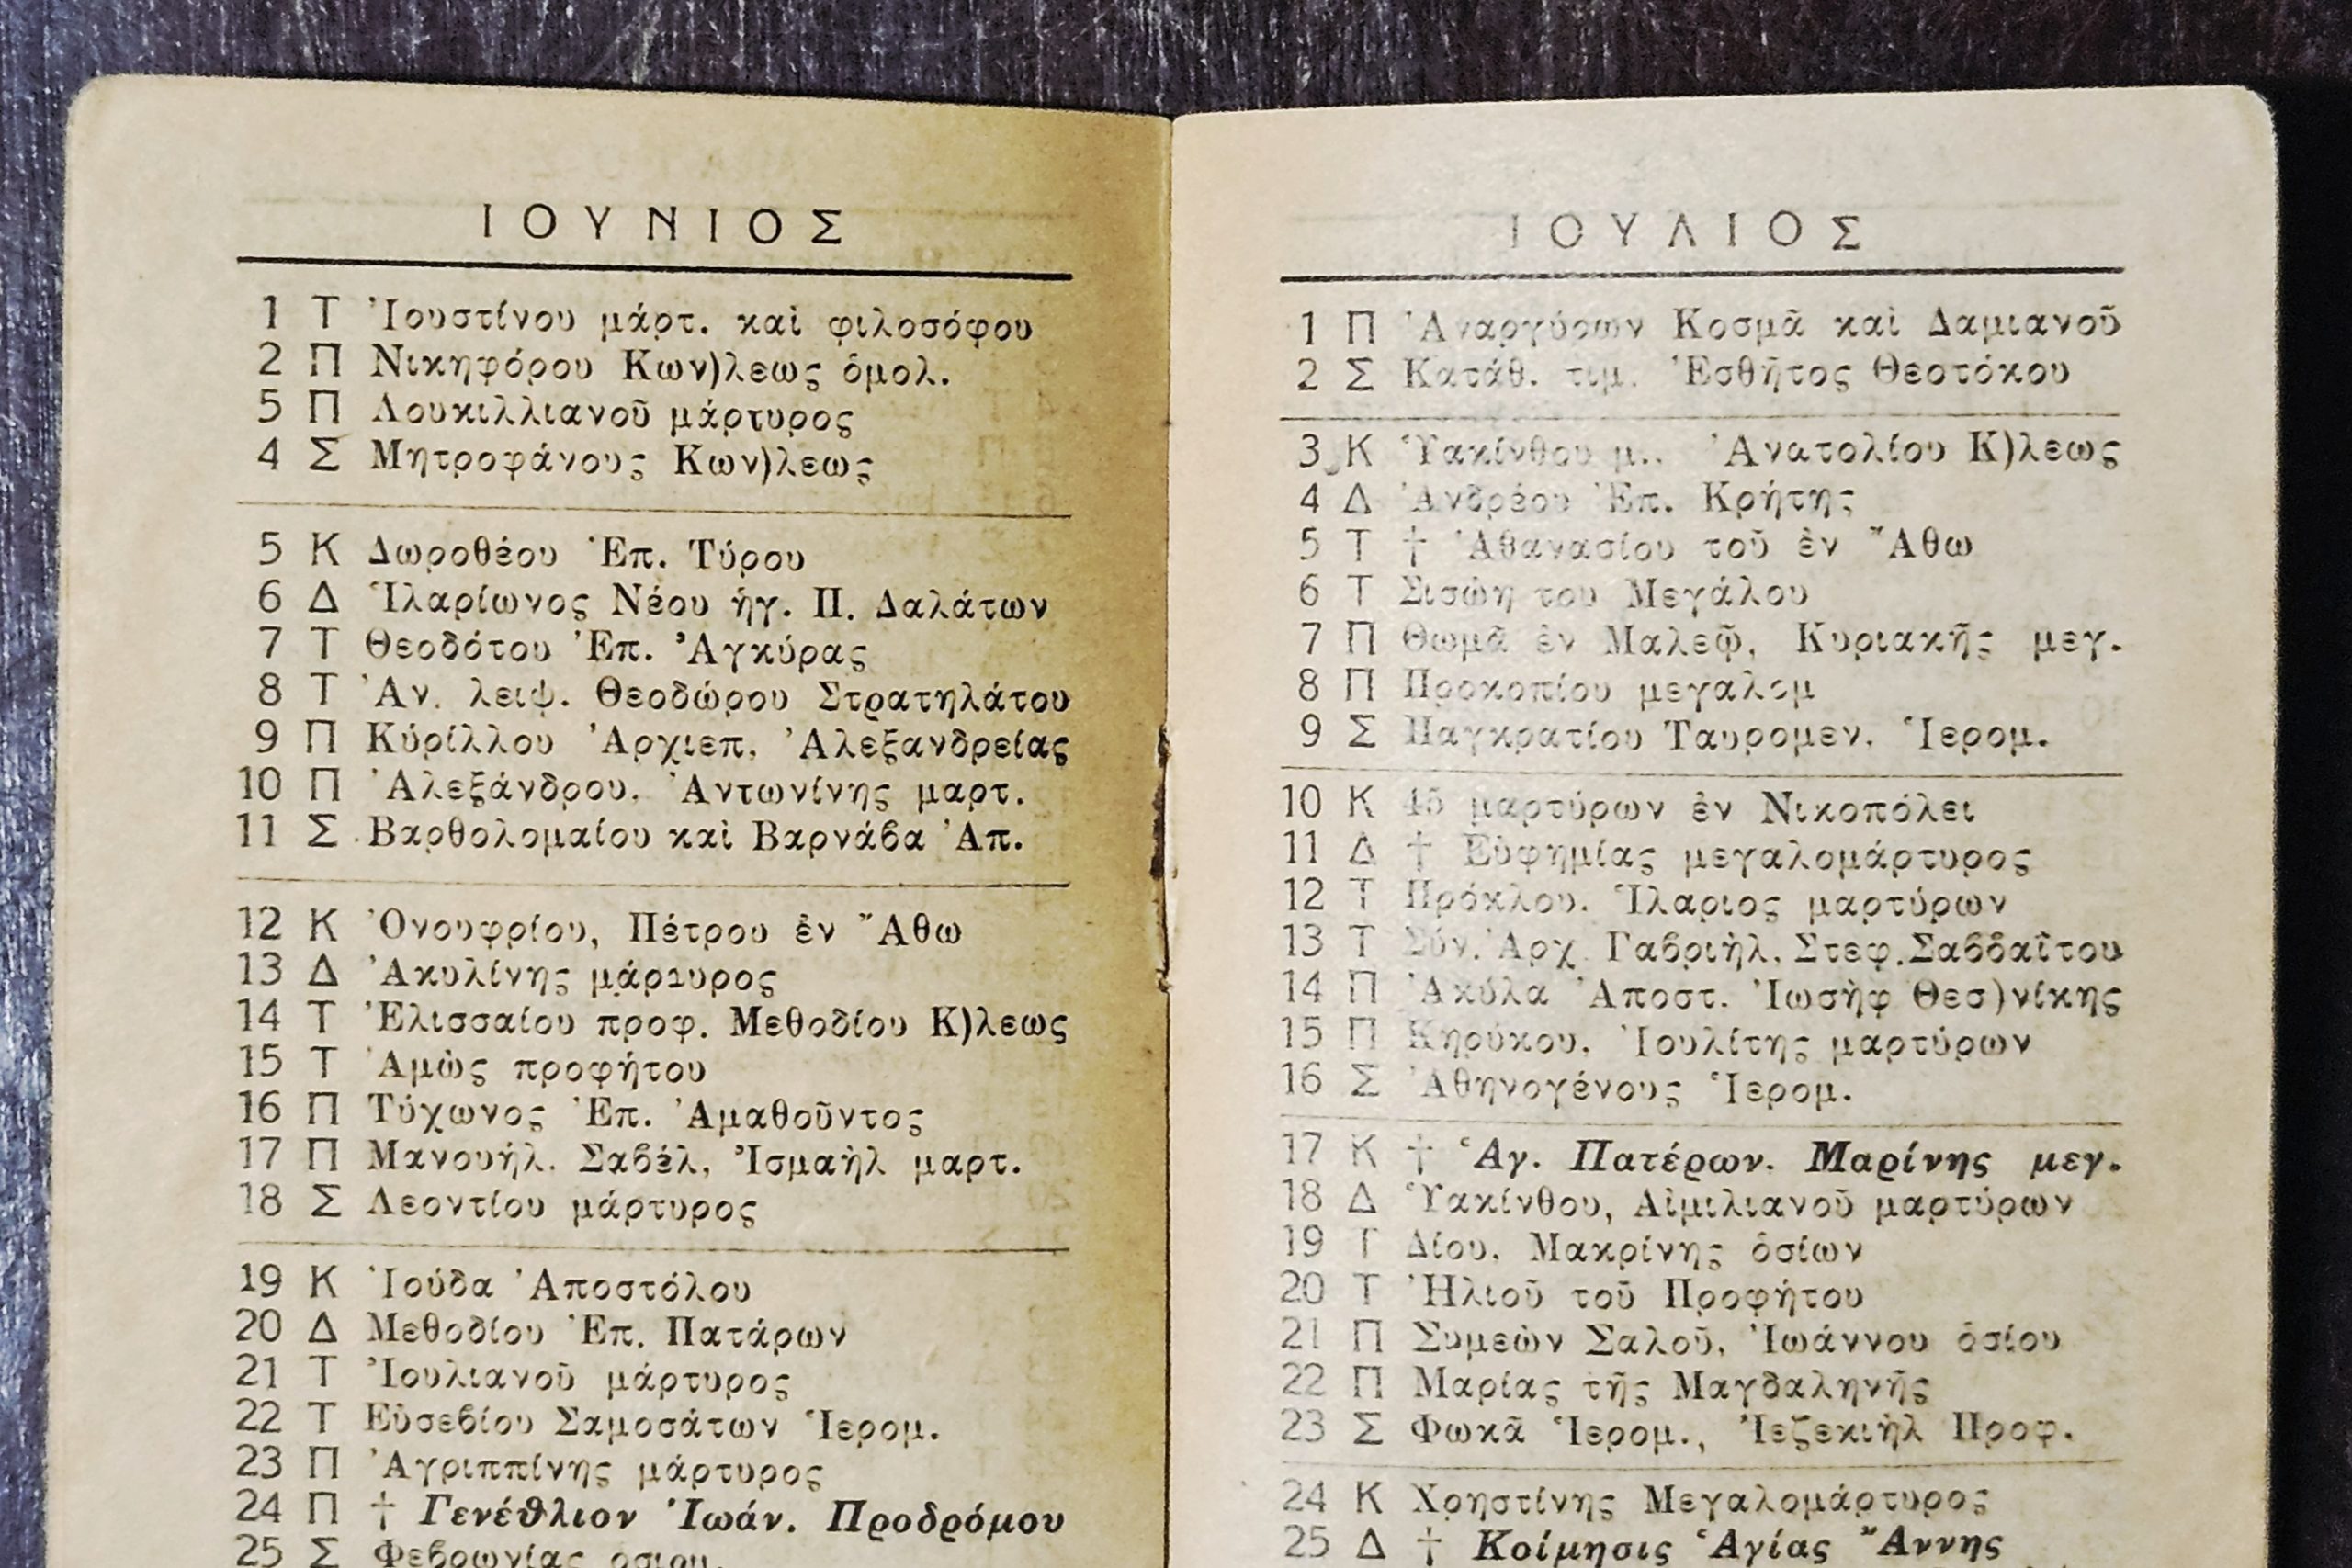 ΙΟΥΝΙΟΣ
1 Τ Ἰουστίνου μάρτ. καὶ φιλοσόφου
2 Π Νικηφόρου Κων)λεως ὁμολ.
5 Π Λουκιλλιανοῦ μάρτυρος
4 Σ Μητροφάνους Κων)λεως
5 Κ Δωροθέου Ἐπ. Τύρου
6 Δ Ἱλαρίωνος Νέου ἡγ. Π. Δαλάτων
7 Τ Θεοδότου Ἐπ. Ἀγκύρας
8 Τ Ἀν. λειψ. Θεοδώρου Στρατηλάτου
9 Π Κύρίλλου Ἀρχιεπ. Ἀλεξανδρείας
10 Π Ἀλεξάνδρου. Ἀντωνίνης μαρτ.
11 Σ Βαρθολομαίου καὶ Βαρνάβα Ἀπ.
12 Κ Ὀνουφρίου, Πέτρου ἐν Ἄθω
13 Δ Ἀκυλίνης μάρτυρος
14 Τ Ἐλισσαίου προφ. Μεθοδίου Κ)λεως
15 Τ Ἀμὼς προφήτου
16 Π Τύχωνος Ἐπ. Ἀμαθοῦντος
17 Π Μανουήλ. Σαβέλ, Ἰσμαὴλ μαρτ.
18 Σ Λεοντίου μάρτυρος
19 Κ Ἰούδα Ἀποστόλου
20 Δ Μεθοδίου Ἐπ. Πατάρων
21 Τ Ἰουλιανοῦ μάρτυρος
22 Τ Εὐσεβίου Σαμοσάτων Ἱερομ.
23 Π Ἀγριππίνης μάρτυρος
24 Π † Γενέθλιον Ἰωάν. Προδρόμου
25 Σ Φεβρωνίας ὁσιομ.
ΙΟΥΛΙΟΣ
1 Π Ἀναργύρων Κοσμᾶ καὶ Δαμιανοῦ
2 Σ Κατάθ. τιμ. Ἐσθῆτος Θεοτόκου
3 Κ Ὑακίνθου μ.. Ἀνατολίου Κ)λεως
4 Δ Ἀνδρέου Ἐπ. Κρήτης
5 Τ † Ἀθανασίου τοῦ ἐν Ἄθω
6 Τ Σισώη του Μεγάλου
7 Π Θωμᾶ ἐν Μαλεῷ, Κυριακῆς μεγ.
8 Π Προκοπίου μεγαλομ
9 Σ Παγκρατίου Ταυρομεν. Ἱερομ.
10 Κ 45 μαρτύρων ἐν Νικοπόλει
11 Δ † Εὐφημίας μεγαλομάρτυρος
12 Τ Πρόκλου. Ἱλαριος μαρτύρων
13 Τ Σύν. Ἀρχ. Γαβριὴλ. Στεφ. Σαββαΐτου
14 Π Ἀκύλα Ἀποστ. Ἰωσὴφ Θεσ)νίκης
15 Π Κηρύκου. Ἰουλίτης μαρτύρων
16 Σ Ἀθηνογένους Ἱερομ.
17 Κ † Ἁγ. Πατέρων. Μαρίνης μεγ.
18 Δ Ὑακίνθου, Αἰμιλιανοῦ μαρτύρων
19 Τ Δίου. Μακρίνης ὁσίων
20 Τ Ἠλιοῦ τοῦ Προφήτου
21 Π Συμεὼν Σαλοῦ. Ἰωάννου ὁσίου
22 Π Μαρίας τῆς Μαγδαληνῆς
23 Σ Φωκᾶ Ἱερομ., Ἰεζεκιὴλ Προφ.
24 Κ Χρηστίνης Μεγαλομάρτυρος
25 Δ † Κοίμησις Ἁγίας Ἄννης